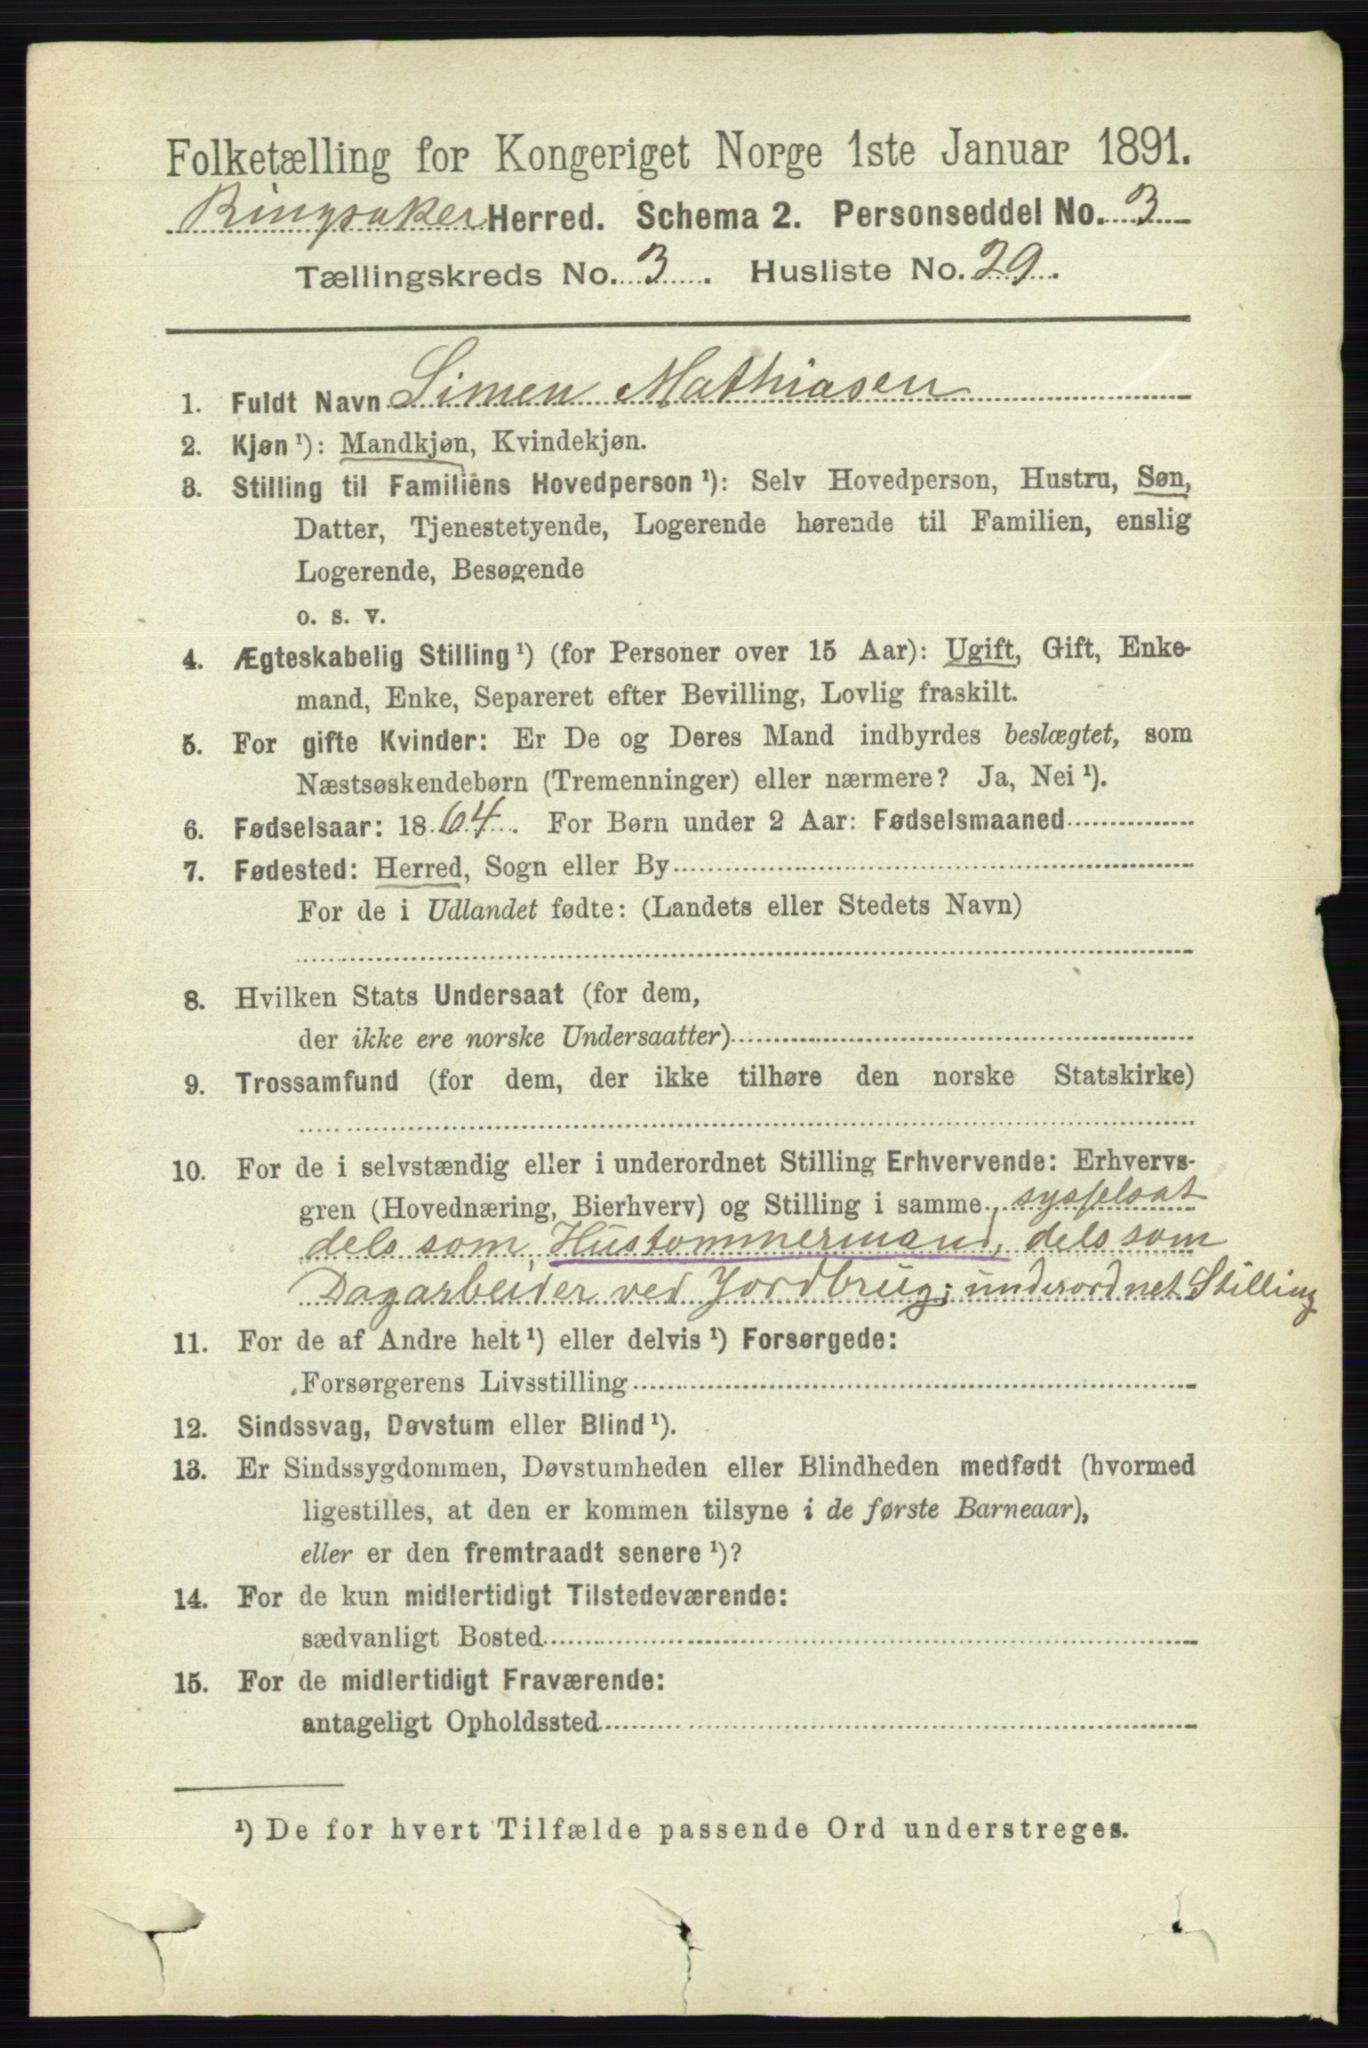 Folketælling for Kongeriget Norge 1ste Januar 1891.
Ringsaker Herred. Schema 2. Personseddel No. 3
Tællingskreds No. 3. Husliste No. 29.
1. Fuldt Navn Simen Mathiasen
2. Kjøn¹): Mandkjøn, Kvindekjøn.
3. Stilling til Familiens Hovedperson¹): Selv Hovedperson, Hustru, Søn,
Datter, Tjenestetyende, Logerende hørende til Familien, enslig
Logerende, Besøgende
o. s. v.
4. Ægteskabelig Stilling¹) (for Personer over 15 Aar): Ugift, Gift, Enke-
mand, Enke, Separeret efter Bevilling, Lovlig fraskilt.
5. For gifte Kvinder: Er De og Deres Mand indbyrdes beslægtet, som
Næstsøskendebørn (Tremenninger) eller nærmere? Ja, Nei¹).
6. Fødselsaar: 1864. For Børn under 2 Aar: Fødselsmaaned
7. Fødested: Herred, Sogn eller By
For de i Udlandet fødte: (Landets eller Stedets Navn)
8. Hvilken Stats Undersaat (for dem,
der ikke ere norske Undersaatter)
9. Trossamfund (for dem, der ikke tilhøre den norske Statskirke)
10. For de i selvstændig eller i underordnet Stilling Erhvervende: Erhvervs-
gren (Hovednæring, Bierhverv) og Stilling i samme, sysselsat
dels som Hustømmermand, dels som
Dagarbeider ved Jordbrug; underordnet Stilling
11. For de af Andre helt¹) eller delvis¹) Forsørgede:
Forsørgerens Livsstilling
12. Sindssvag, Døvstum eller Blind¹).
13. Er Sindssygdommen, Døvstumheden eller Blindheden medfødt (hvormed
ligestilles, at den er kommen tilsyne i de første Barneaar),
eller er den fremtraadt senere¹)?
14. For de kun midlertidigt Tilstedeværende:
sædvanligt Bosted
15. For de midlertidigt Fraværende:
antageligt Opholdssted
¹) De for hvert Tilfælde passende Ord understreges.